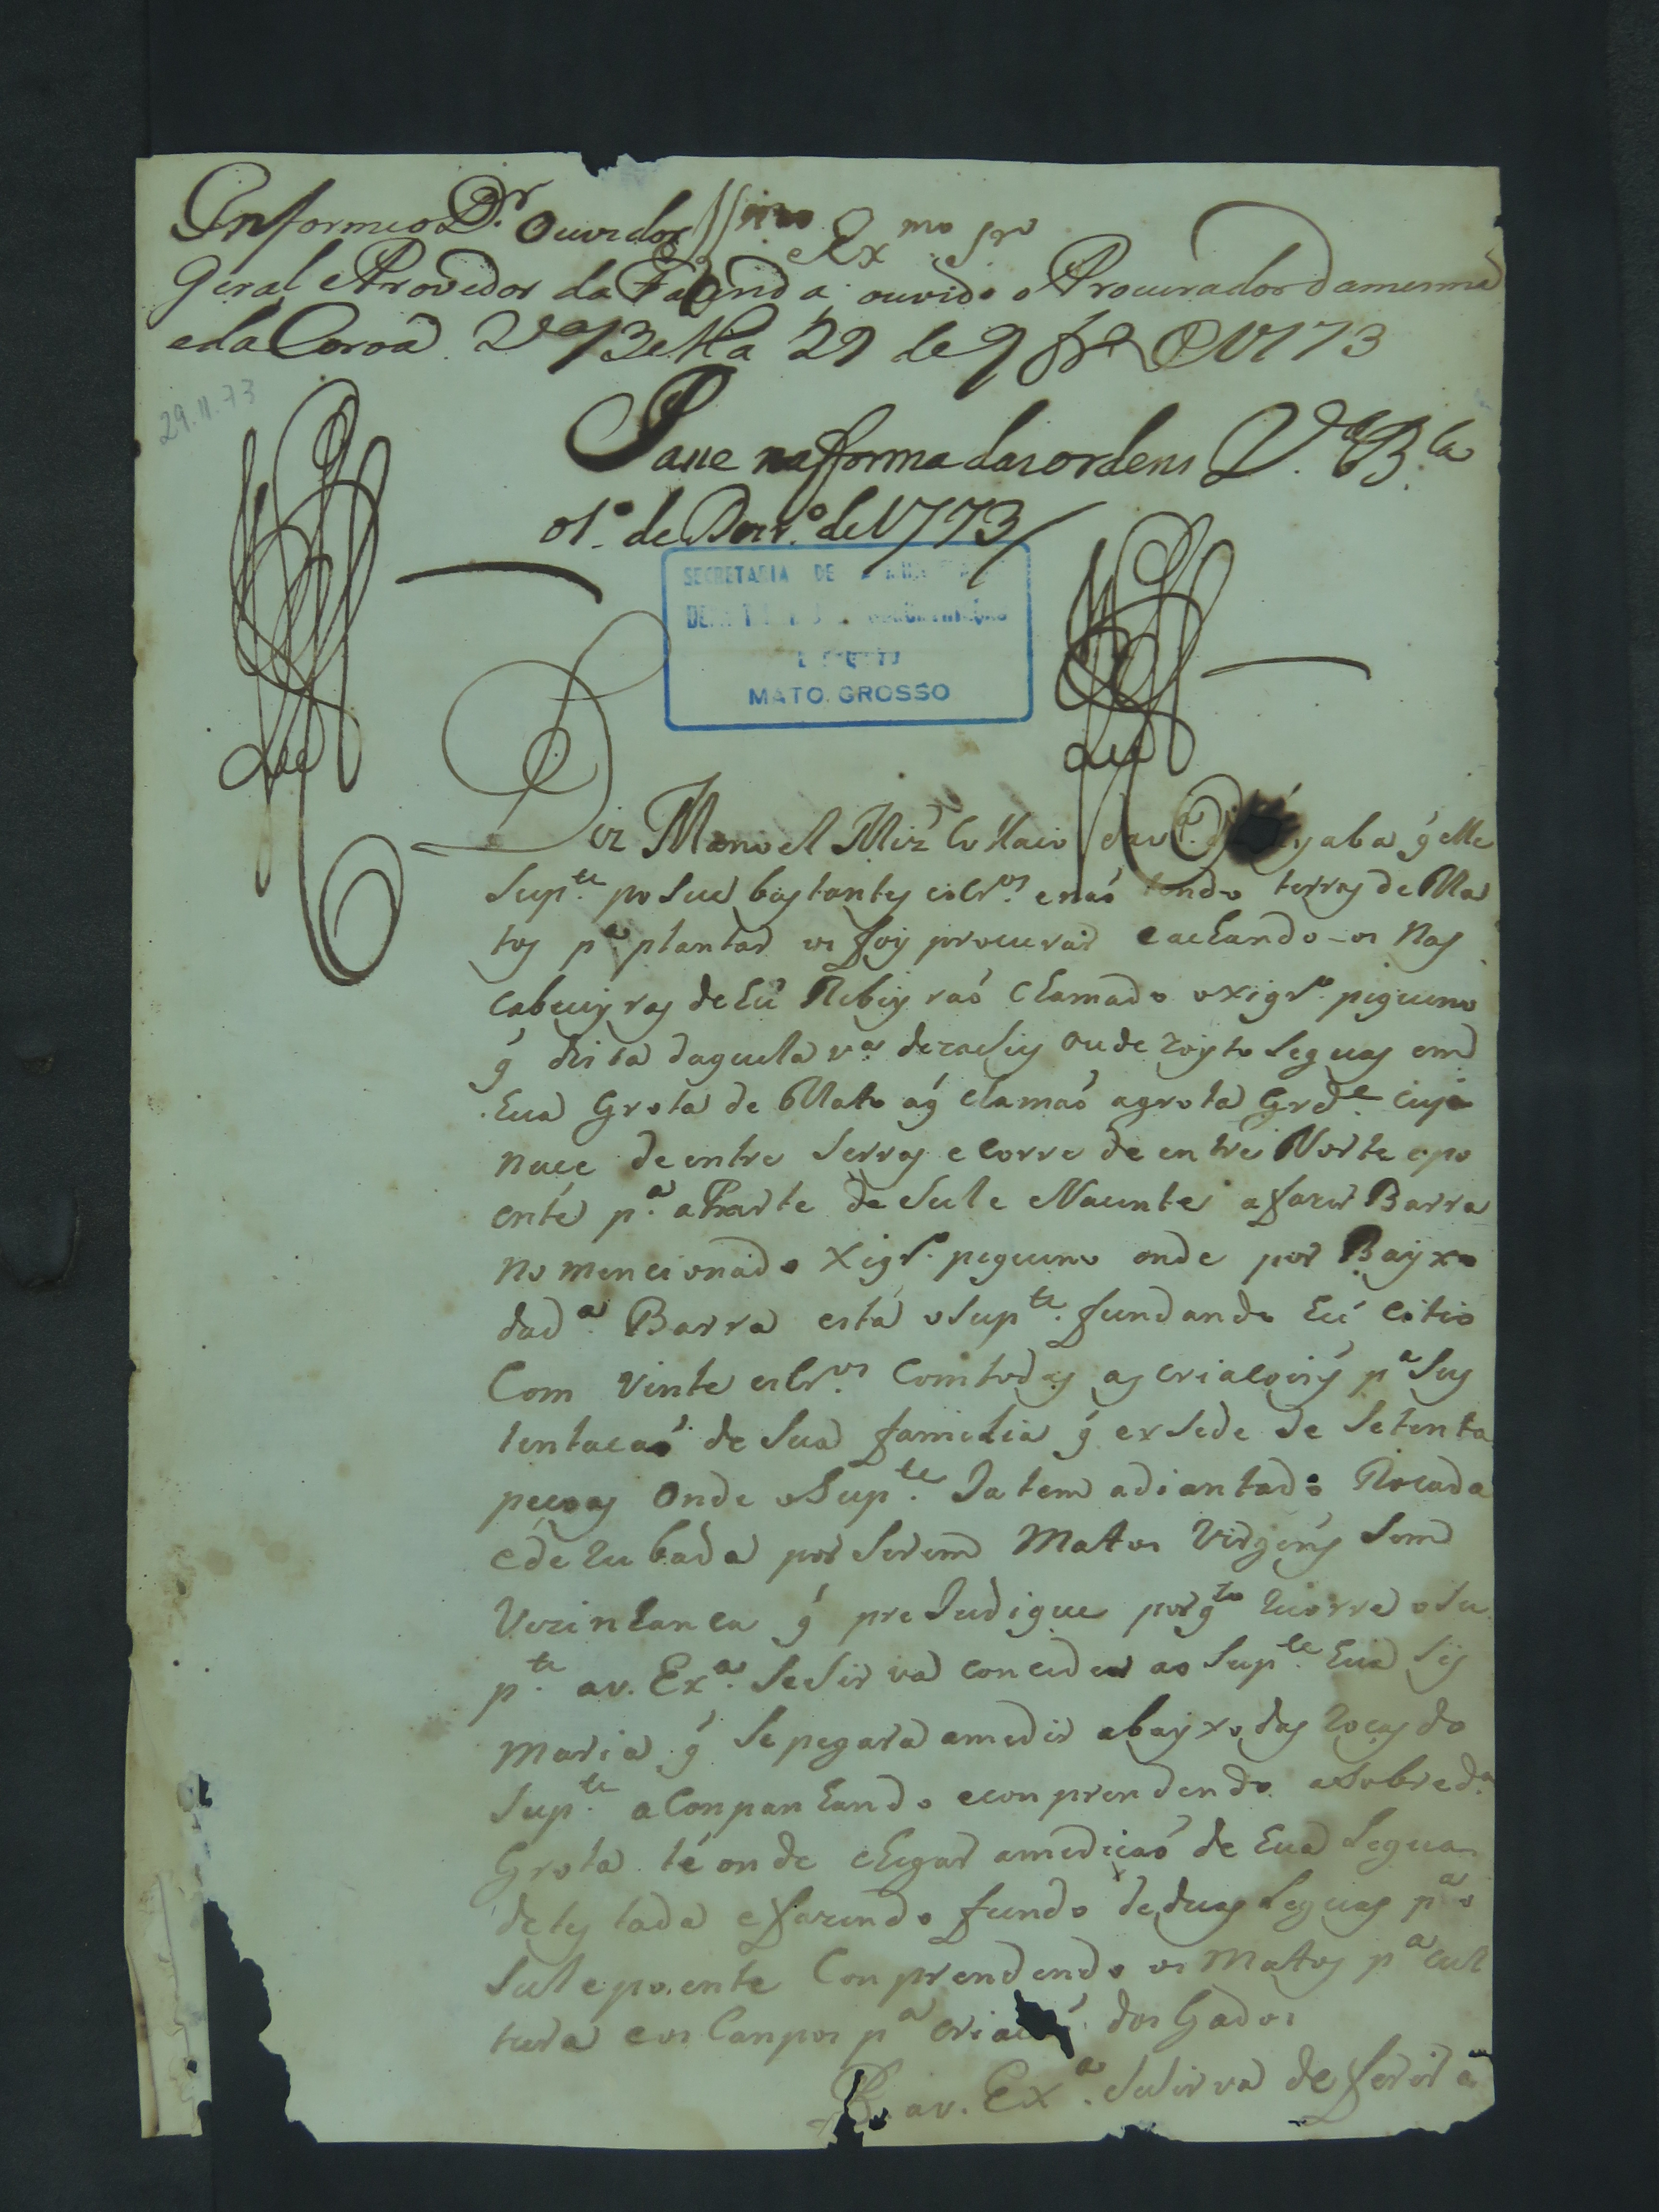 Informe o Dr. Ouvidor Illmo e Exmo Snr
Geral e Provedor da Fazenda, ouvido o Procurador da mesma
e da Coroa. Va Bella 29 de 9bro de 1773
29.11.73
Passe na forma das ordens Va. Bla
01º de Dezrº de 1773
SECRETARIA DE
MATO GROSSO
Diz Manoel Miz Collaço da va. do yaba q elle
Supte. posue bastantes escros. e naó tendo terras de Ma
tos pa plantar os foy procurar e achando-os nas
cabeceyras de hú Ribeyraó chamado o xigro. piqueno
q dista daquela va dezaseis ou dezoyto leguas em
hua Grota de Mato aq chamaó a grota Grde cuja
nace de entre Serras e corre de entre Norte e po
ente pa. a Parte de Sul e Nacente a fazer Barra
no mencionado Xigro. piqueno onde por Bayxo
da da. Barra está o Supte. fundando hú citio
Com vinte escros. Com todas as criacoins pa Sus
tentacaó de Sua familia q exsede de Setenta
pecoas onde o Supte. Ja tem adiantado Rocada
e de Rubada por Serem Matos Virgens Sem
Vezinhanca q preJudique porqto Recorre o Su
pte. a v. Exa. Se Sirva conceder ao Supte. hua Sis
maria q Se pegara a medir abayxo das Rocas do
Supte. a Conpanhando e conprendendo a Sobreda.
Grota té onde chegar a medicaó de hua Legua
de testada e fazendo fundo de duas Leguas pa o
Sul e poente Conprendendo os Matos pa cul
tura e os Canpos pa criacaó dos Gados
P. a v. Exa. Se Sirva deferir a